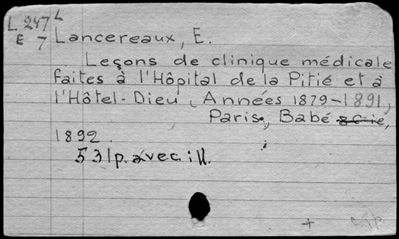 L. 247 L
E 7
Lancereaux, E.
Leçons de clinique médicale
faites à l'Hôpital de la Pitié et à
l'Hôtel-Dieu, Années 1879-1891,
Paris, Babé & Cie,
1892
531p. avec ill.